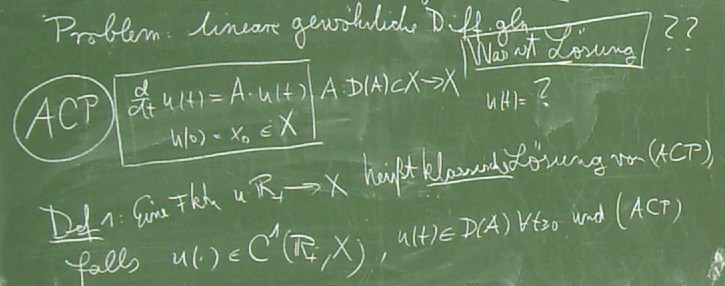 Problem: lineare gewöhnliche Diff.gln
Was ist Lösung ??
ACP
d/dt u(t) = A · u(t)
u(0) = x₀ ∈ X
A: D(A) ⊂ X → X
u(t) = ?
Def 1: Eine Fktn u ℝ₊ → X heißt klassische Lösung von (ACP),
falls u(·) ∈ C¹(ℝ₊, X), u(t) ∈ D(A) ∀t≥0 und (ACP)